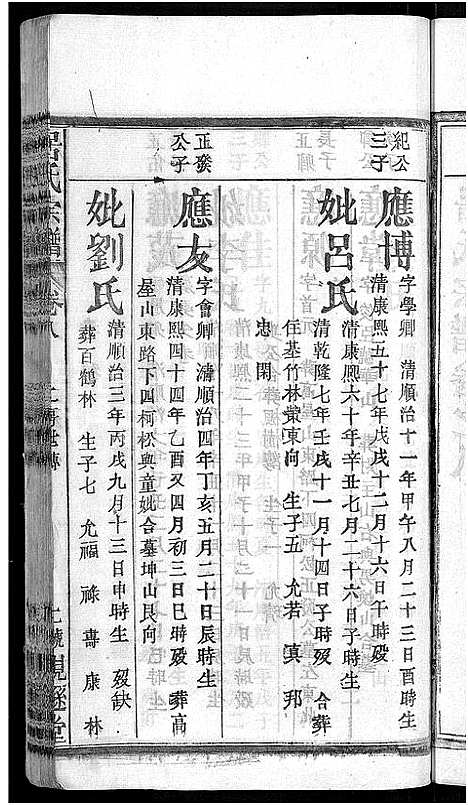 紀公
三子
應博
字學卿 清順治十一年甲午八月二十三日酉時生
清康熙五十七年戊戌十二月十六日午時殁
妣呂氏
清康熙六十年辛丑七月二十六日子時生
清乾隆七年壬戌十一月十四日子時殁 合葬
任基竹林棠東向 生子五 允若 滇 邦
忠 閑
正發
公子
應友
字會卿 清順治四年丁亥五月二十日辰時生
清康熙四十四年乙酉又四月初三日巳時殁 葬高
屋山東路下四柯松與童妣合墓坤山艮向
妣劉氏
清順治三年丙戌九月十三日申時生 殁缺
葬百鶴林 生子七 允福 祿 壽 康 林
呂氏宗譜 卷八